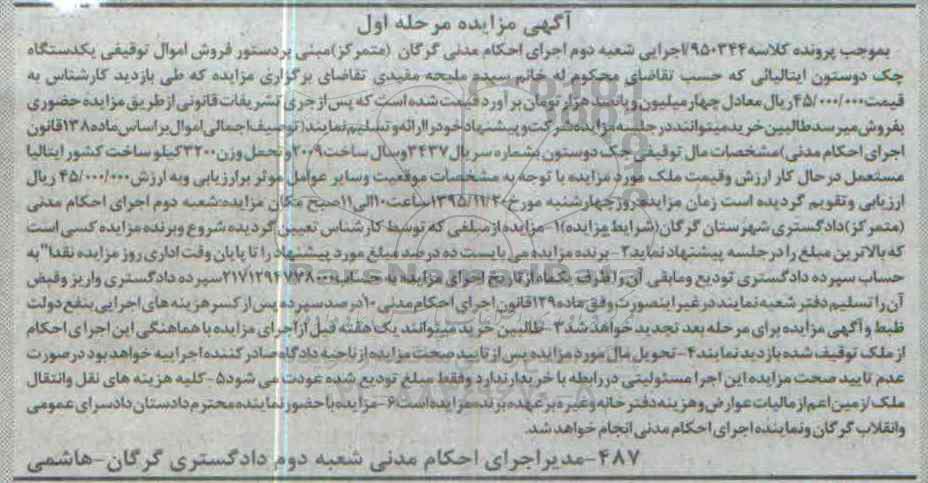 آگهی مزایده مرحله اول
بموجب پرونده کلاسه۹۵۰۳۴۴/اجرایی شعبه دوم اجرای احکام مدنی گرگان (متمرکز)مبنی بردستور فروش اموال توقیفی یکدستگاه
جک دوستون ایتالیائی که حسب تقاضای محکوم له خانم سیده ملیحه مفیدی تقاضای برگزاری مزایده که طی بازدید کارشناس به
قیمت۴۵/۰۰۰/۰۰۰ریال معادل چهارمیلیون وپانصد هزار تومان بر آورد قیمت شده است که پس ازجری تشریفات قانونی ازطریق مزایده حضوری
بفروش میرسدطالبین خرید میتوانند در جلسه مزایده شرکت وپیشنهاد خودرا ارائه وتسلیم نمایند(توصیف اجمالی اموال براساس ماده۱۳۸قانون
اجرای احکام مدنی)مشخصات مال توقیفی جک دوستون بشماره سریال۳۴۳۷وسال ساخت۲۰۰۹وتحمل وزن۳۲۰۰کیلو ساخت کشور ایتالیا
مستعمل درحال کار ارزش وقیمت ملک مورد مزایده با توجه به مشخصات موقعیت وسایر عوامل موثر برارزیابی وبه ارزش۴۵/۰۰۰/۰۰۰ ریال
ارزیابی وتقویم گردیده است زمان مزایده روزچهارشنبه مورخ۱۳۹۵/۱۱/۲۰ساعت۱۰الی۱۱صبح مکان مزایده شعبه دوم اجرای احکام مدنی
(متمرکز)دادگستری شهرستان گرگان(شرایط مزایده)۱-مزایده ازمبلغی که توسط کارشناس تعیین گردیده شروع وبرنده مزایده کسی است
که بالاترین مبلغ را در جلسه پیشنهاد نماید۲-برنده مزایده می بایست ده درصد مبلغ مورد پیشنهاد را تا پایان وقت اداری روز مزایده نقدا"به
حساب سپرده دادگستری تودیع ومابقی آن راظرف یکماه ازتاریخ اجرای مزایده به حساب سپرده دادگستری واریز وقبض
آن را تسلیم دفتر شعبه نمایند در غیر اینصورت وفق ماده۱۲۹قانون اجرای احکام مدنی ۱۰درصد سپرده پس از کسر هزینه های اجرایی بنفع دولت
ظبط وآگهی مزایده برای مرحله بعد تجدید خواهد شد۳-طالبین خرید میتوانند یک هفته قبل ازاجرای مزایده با هماهنگی این اجرای احکام
از ملک توقیف شده بازدید نمایند۴-تحویل مال مورد مزایده پس از تایید صحت مزایده از ناحیه دادگاه صادر کننده اجراییه خواهد بود در صورت
عدم تایید صحت مزایده این اجرا مسئولیتی دررابطه با خریدار ندارد وفقط مبلغ تودیع شده عودت می شود۵-کلیه هزینه های نقل وانتقال
ملک/زمین اعم از مالیات عوارض وهزینه دفتر خانه وغیره بر عهده برنده مزایده است۶-مزایده با حضور نماینده محترم دادستان دادسرای عمومی
وانقلاب گرگان ونماینده اجرای احکام مدنی انجام خواهد شد.
۴۸۷-مدیراجرای احکام مدنی شعبه دوم دادگستری گرگان-هاشمی